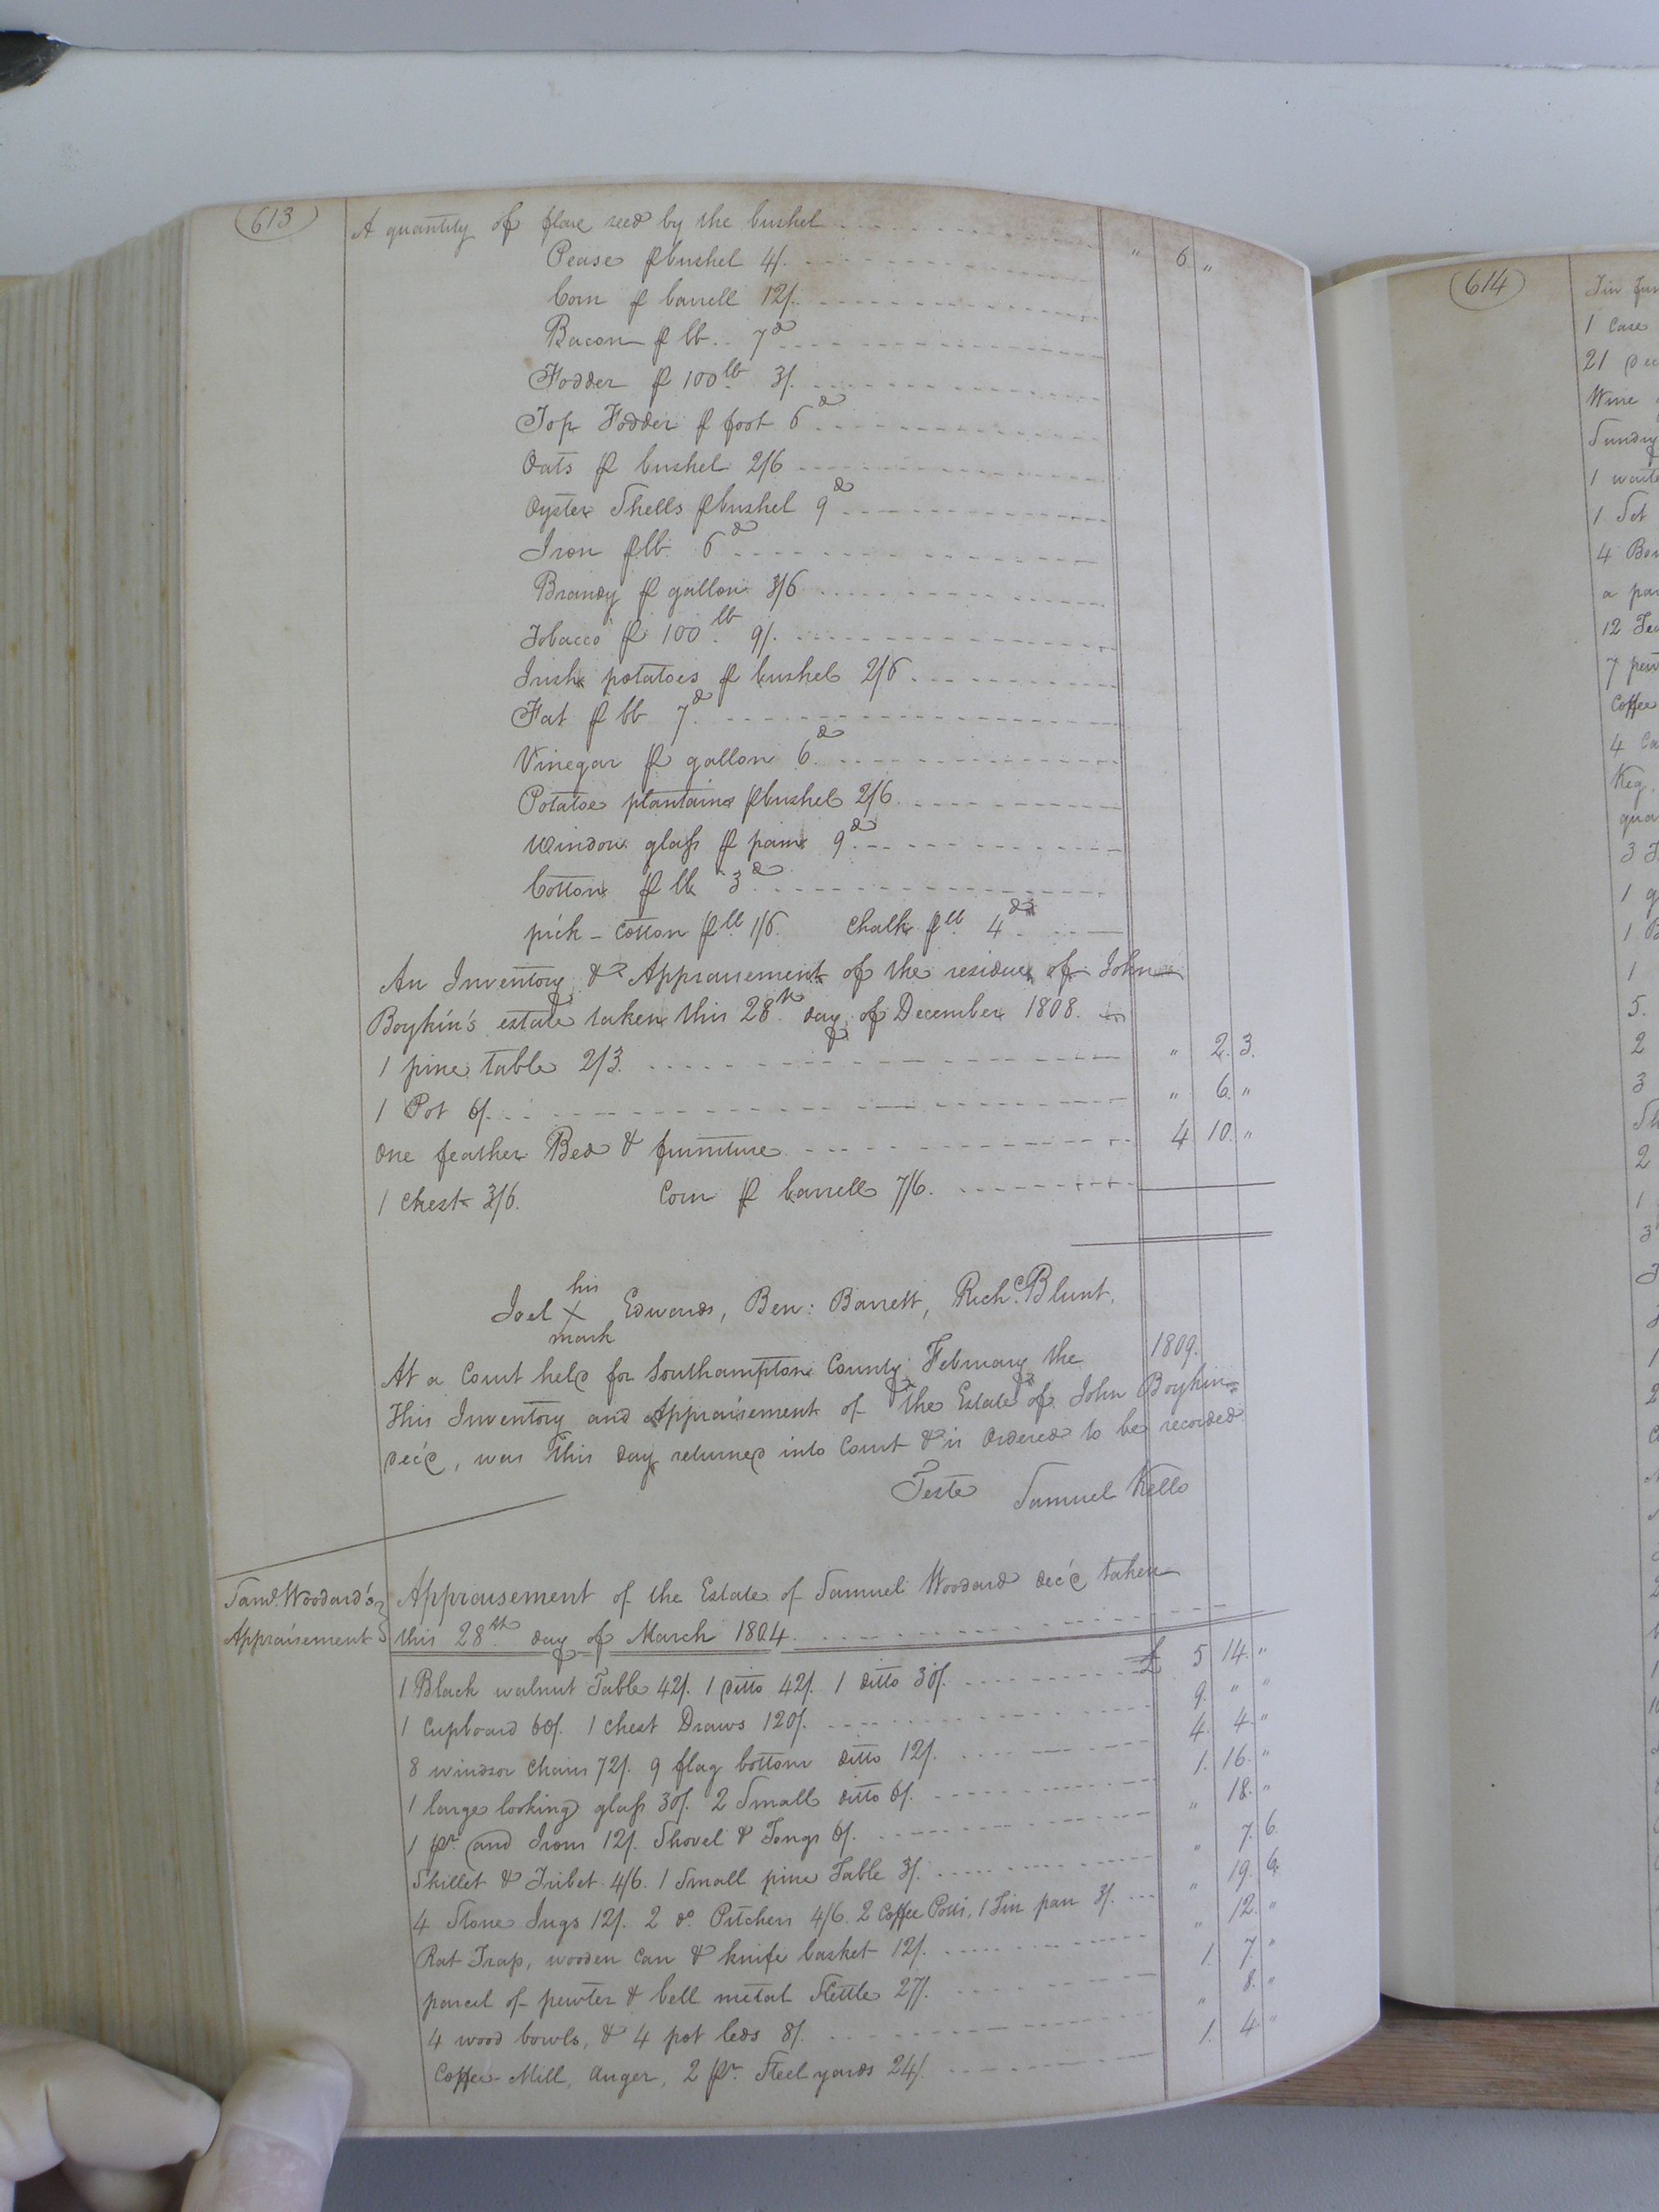 613
A quantity of flax seed by the bushel " 6 "
Pease ⅌ bushel 4/.
Corn ⅌ barrell 12/.
Bacon ⅌ lb. 7d
Fodder ⅌ 100lb 3/.
Top Fodder ⅌ foot 6d
Oats ⅌ bushel 2/6
Oyster Shells ⅌ bushel 9d
Iron ⅌ lb 6d
Brandy ⅌ gallon 3/6
Tobacco ⅌ 100lb 9/.
Irish potatoes ⅌ bushel 2/6
Fat ⅌ lb 7d
Vinegar ⅌ gallon 6d
Potatoe plantains ⅌ bushel 2/6
Window glass ⅌ pain 9d
Cotton ⅌ lb 3d
pick-cotton ⅌ lb 1/6 Chalk ⅌ lb 4d
An Inventory & Appraisement of the residue of John
Boykin's estate taken this 28th day of December 1808.
1 pine table 2/3 " 2. 3.
1 Pot 6/. " 6. "
One feather Bed & furniture 4 10. "
1 Chest 3/6. Corn ⅌ barrell 7/6.
Joel his X mark Edwards, Ben: Barrett, Richd Blunt.
At a Court held for Southampton County February the 1809.
This Inventory and Appraisement of the Estate of John Boykin
dec'd, was this day returned into Court & is Ordered to be recorded
Teste Samuel Kello
Saml. Woodard's
Appraisement
Appraisement of the Estate of Samuel Woodard dec'd taken
this 28th day of March 1804.
1 Black walnut Table 42/. 1 ditto 42/. 1 ditto 30/. £ 5 14. "
1 Cupboard 60/. 1 Chest Draws 120/. 9. " "
8 windsor Chairs 72/. 9 flag bottom ditto 12/. 4. 4. "
1 large looking glass 30/. 2 Small ditto 6/. 1. 16. "
1 pr and Irons 12/. Shovel & Tongs 6/. " 18. "
Skillet & Tribet 4/6. 1 Small pine Table 3/. " 7. 6.
4 Stone Jugs 12/. 2 do Pitchers 4/6. 2 Coffee Potts, 1 Tin pan 3/. " 19. 6.
Rat Trap, wooden can & knife basket 12/. " 12. "
parcel of pewter & bell metal Kettle 27/. 1. 7. "
4 wood bowls, & 4 pot leds 8/. " 8. "
Coffee Mill, Auger, 2 pr Steel yards 24/. 1. 4. "
614
1 Case
21
Wine
Sundry
1
1 Set
4
a
12
7
Coffee
4
Keg.
3
1
1
1
5.
2
3
2
1
3